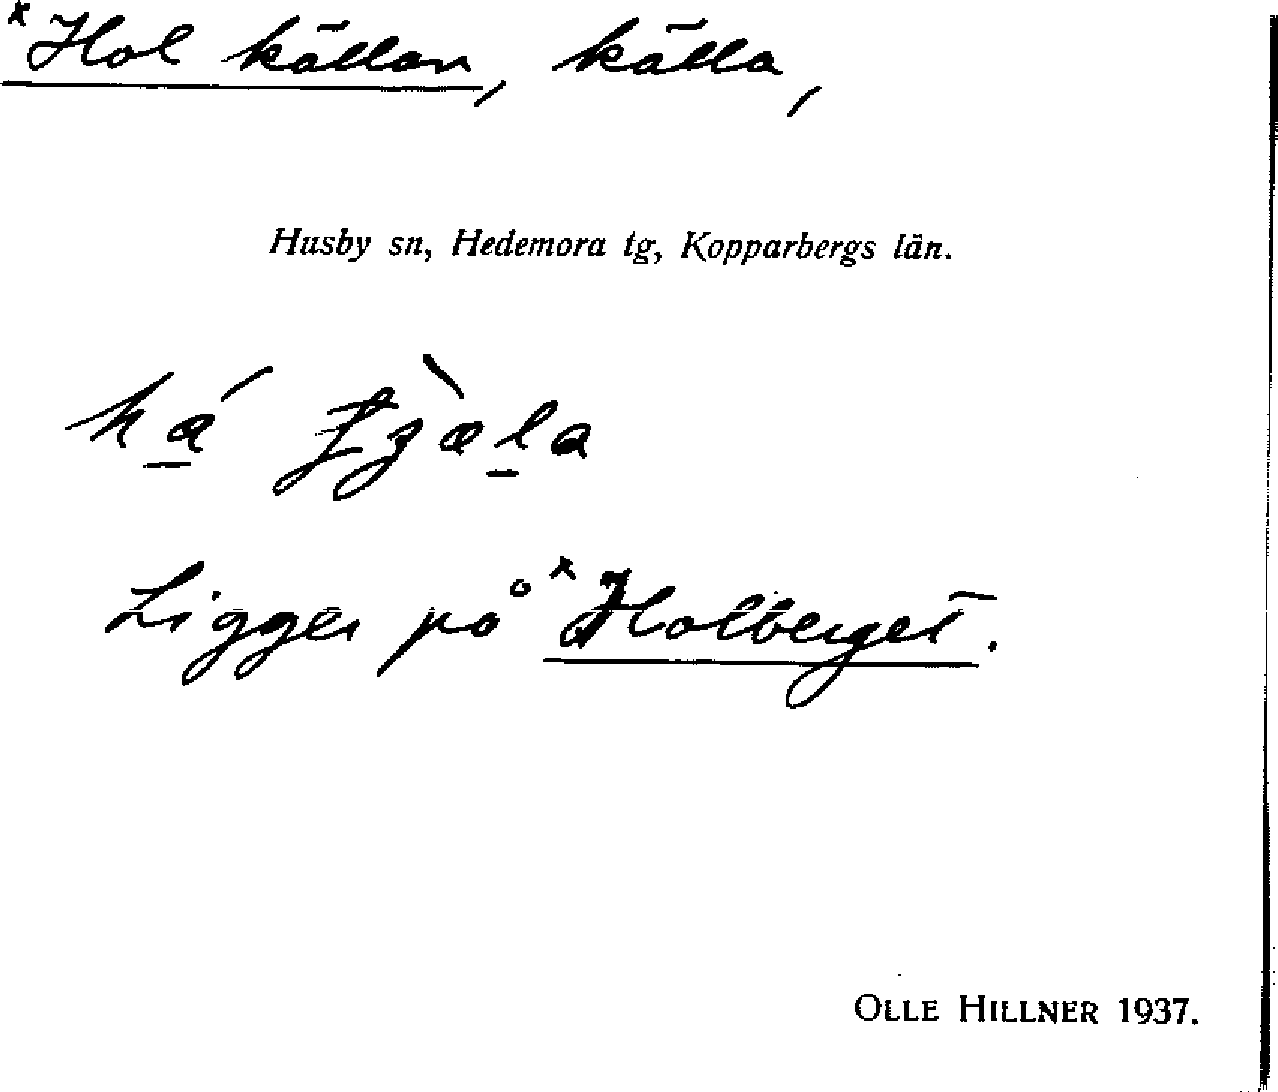 *Hol källan, källa,
Husby sn, Hedemora tg, Kopparbergs län.
Ligger på *Holberget.
OLLE HILLNER 1937.